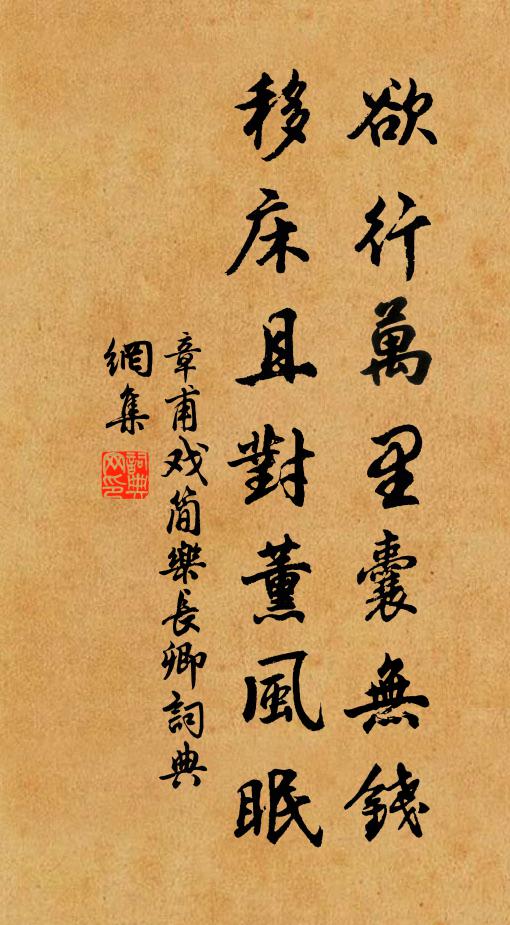 欲行萬里囊無錢
移床且對薰風眠
章甫戏简樂長卿詞典
網集
詞典
网印